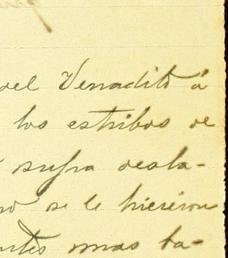 del Venadito á
los estribos de
sufra desla-
se le hicieron
mas ta-